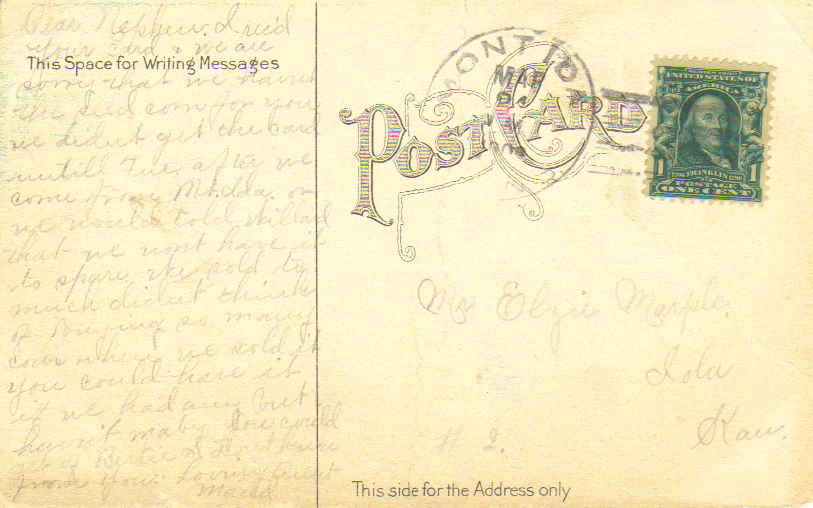 Dear Nephew. I rec'd
your card & we are
This Space for Writing Messages
sorry that we haven't
the seed corn for you
we didn't get the card
until after we
come from Matilda. or
we would told
that we wont have it
to spare we sold to
much didn't think
of buying so many
cows when we sold it
you could have it
if we had any but
haven't maby you could
get of Bertie I don't know
from your Loving Aunt
MONT IDA
MAR
POST CARD
UNITED STATES OF
AMERICA
1 FRANKLIN 1
POSTAGE
ONE CENT
Mr Elzie Marple.
Iola
# 2. Kan.
This side for the Address only